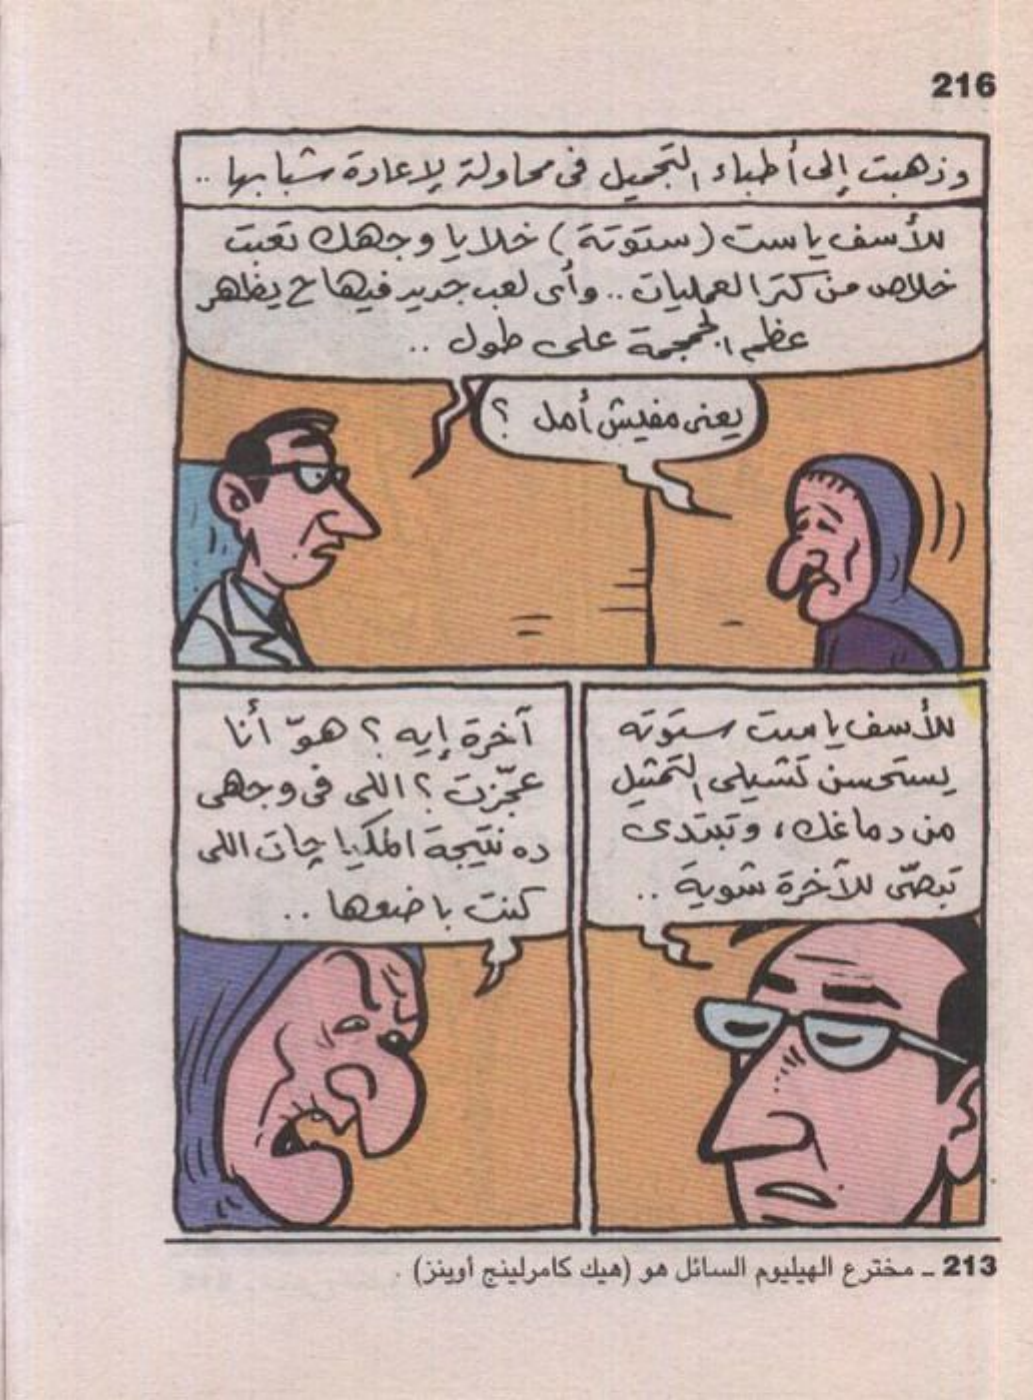 216
وذهبت إلى أطباء التجميل فى محاولة لإعادة شبابها ..
للأسف ياست (ستوتة) خلايا وجهك تعبت
خلاص من كتر العمليات .. وأى لعب جديد فيها ح يظهر
عظم الجمجمة على طول ..
يعنى مفيش أمل ؟
للأسف ياست ستوته
يستحسن تشيلى التمثيل
من دماغك ، وتبتدى
تبصّى للآخرة شوية ..
آخرة إيه ؟ هوّ أنا
عجّزت ؟ اللى فى وجهى
ده نتيجة المكياچات اللى
كنت باضعها ..
213 ـ مخترع الهيليوم السائل هو (هيك كامرلينج أوينز) .